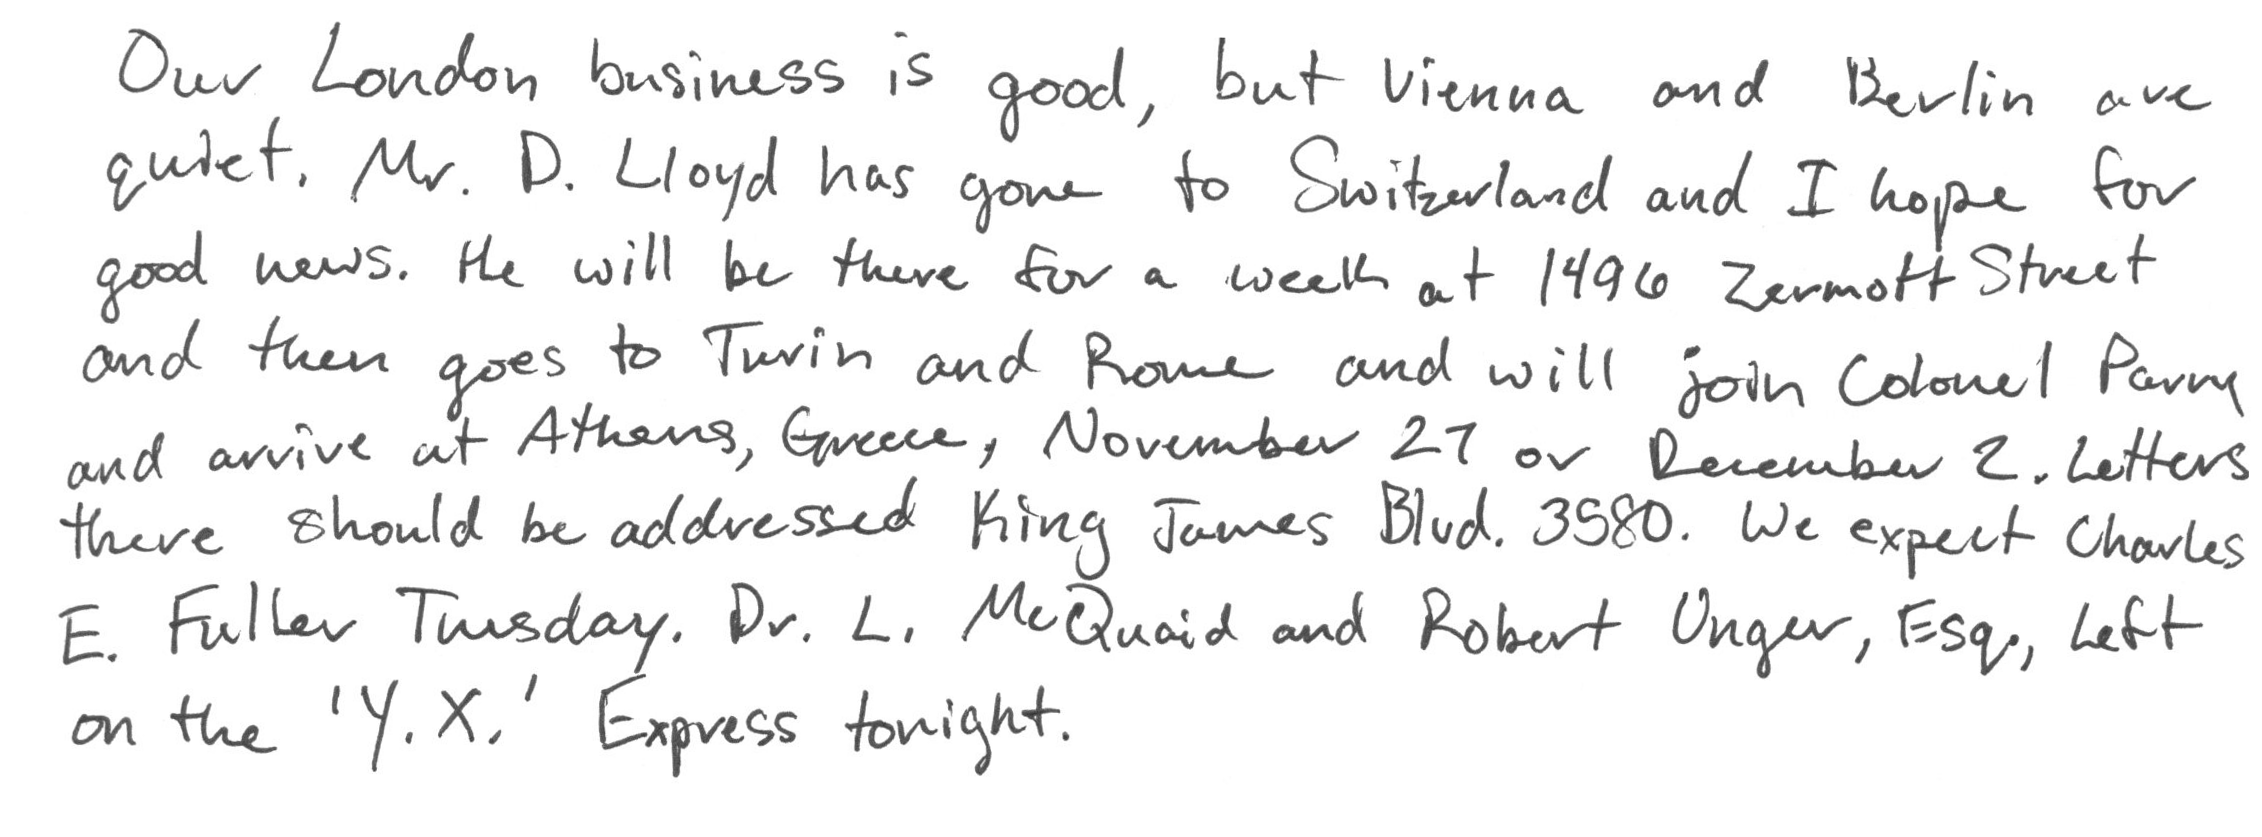 Our London business is good, but Vienna and Berlin are
quiet. Mr. D. Lloyd has gone to Switzerland and I hope for
good news. He will be there for a week at 1496 Zermott Street
and then goes to Turin and Rome and will join Colonel Parry
and arrive at Athens, Greece, November 27 or December 2. Letters
there should be addressed King James Blvd. 3580. We expect Charles
E. Fuller Tuesday. Dr. L. McQuaid and Robert Unger, Esq., left
on the 'Y.X.' Express tonight.